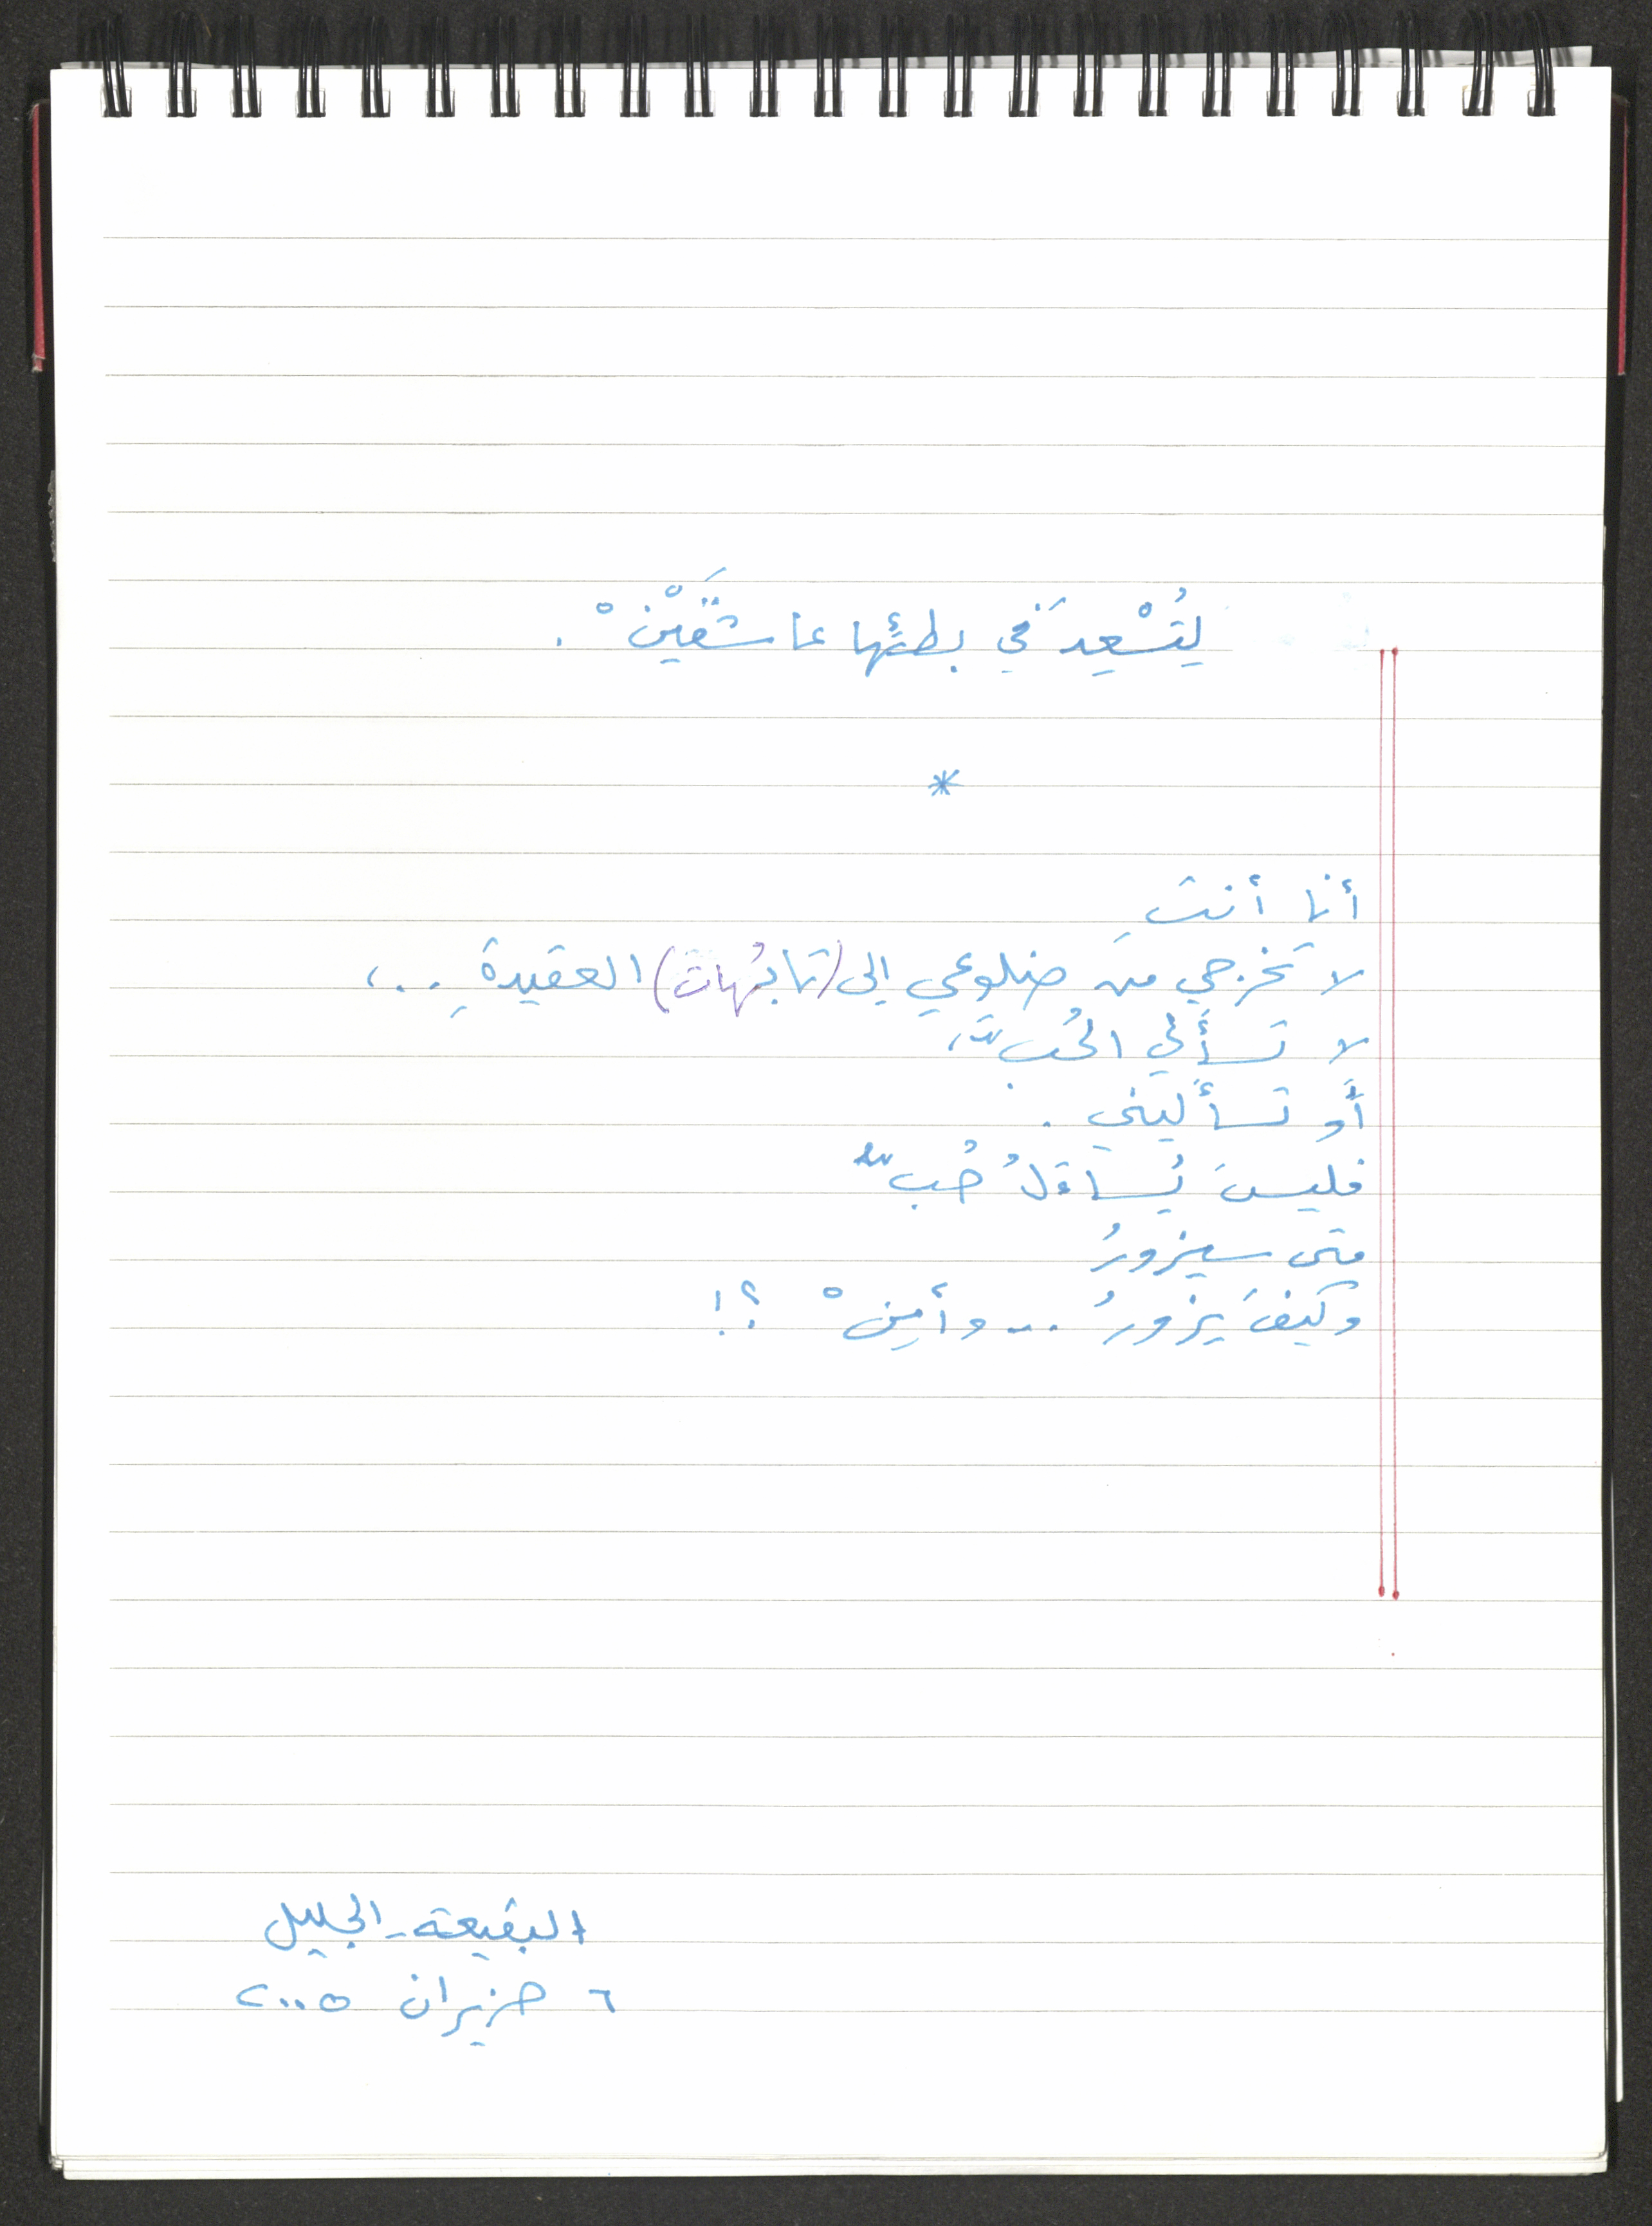 لِتُسْعِدَ في بطئِها عاشقَيْنْ .
*
أنا أنتِ
لا تَخرجي منَ ضلوعي إلى (تابُهات) العقيدةِ ..،
لا تَسأَلي الحُبَّ،
أَو تَسأَليني .
فليسَ يُساءَلُ حُبٌّ
متى سيزورُ
وكيفَ يَزورُ ... وأَينْ ؟!
البقيعة - الجليل
٦ حزيران ٢٠٠٥